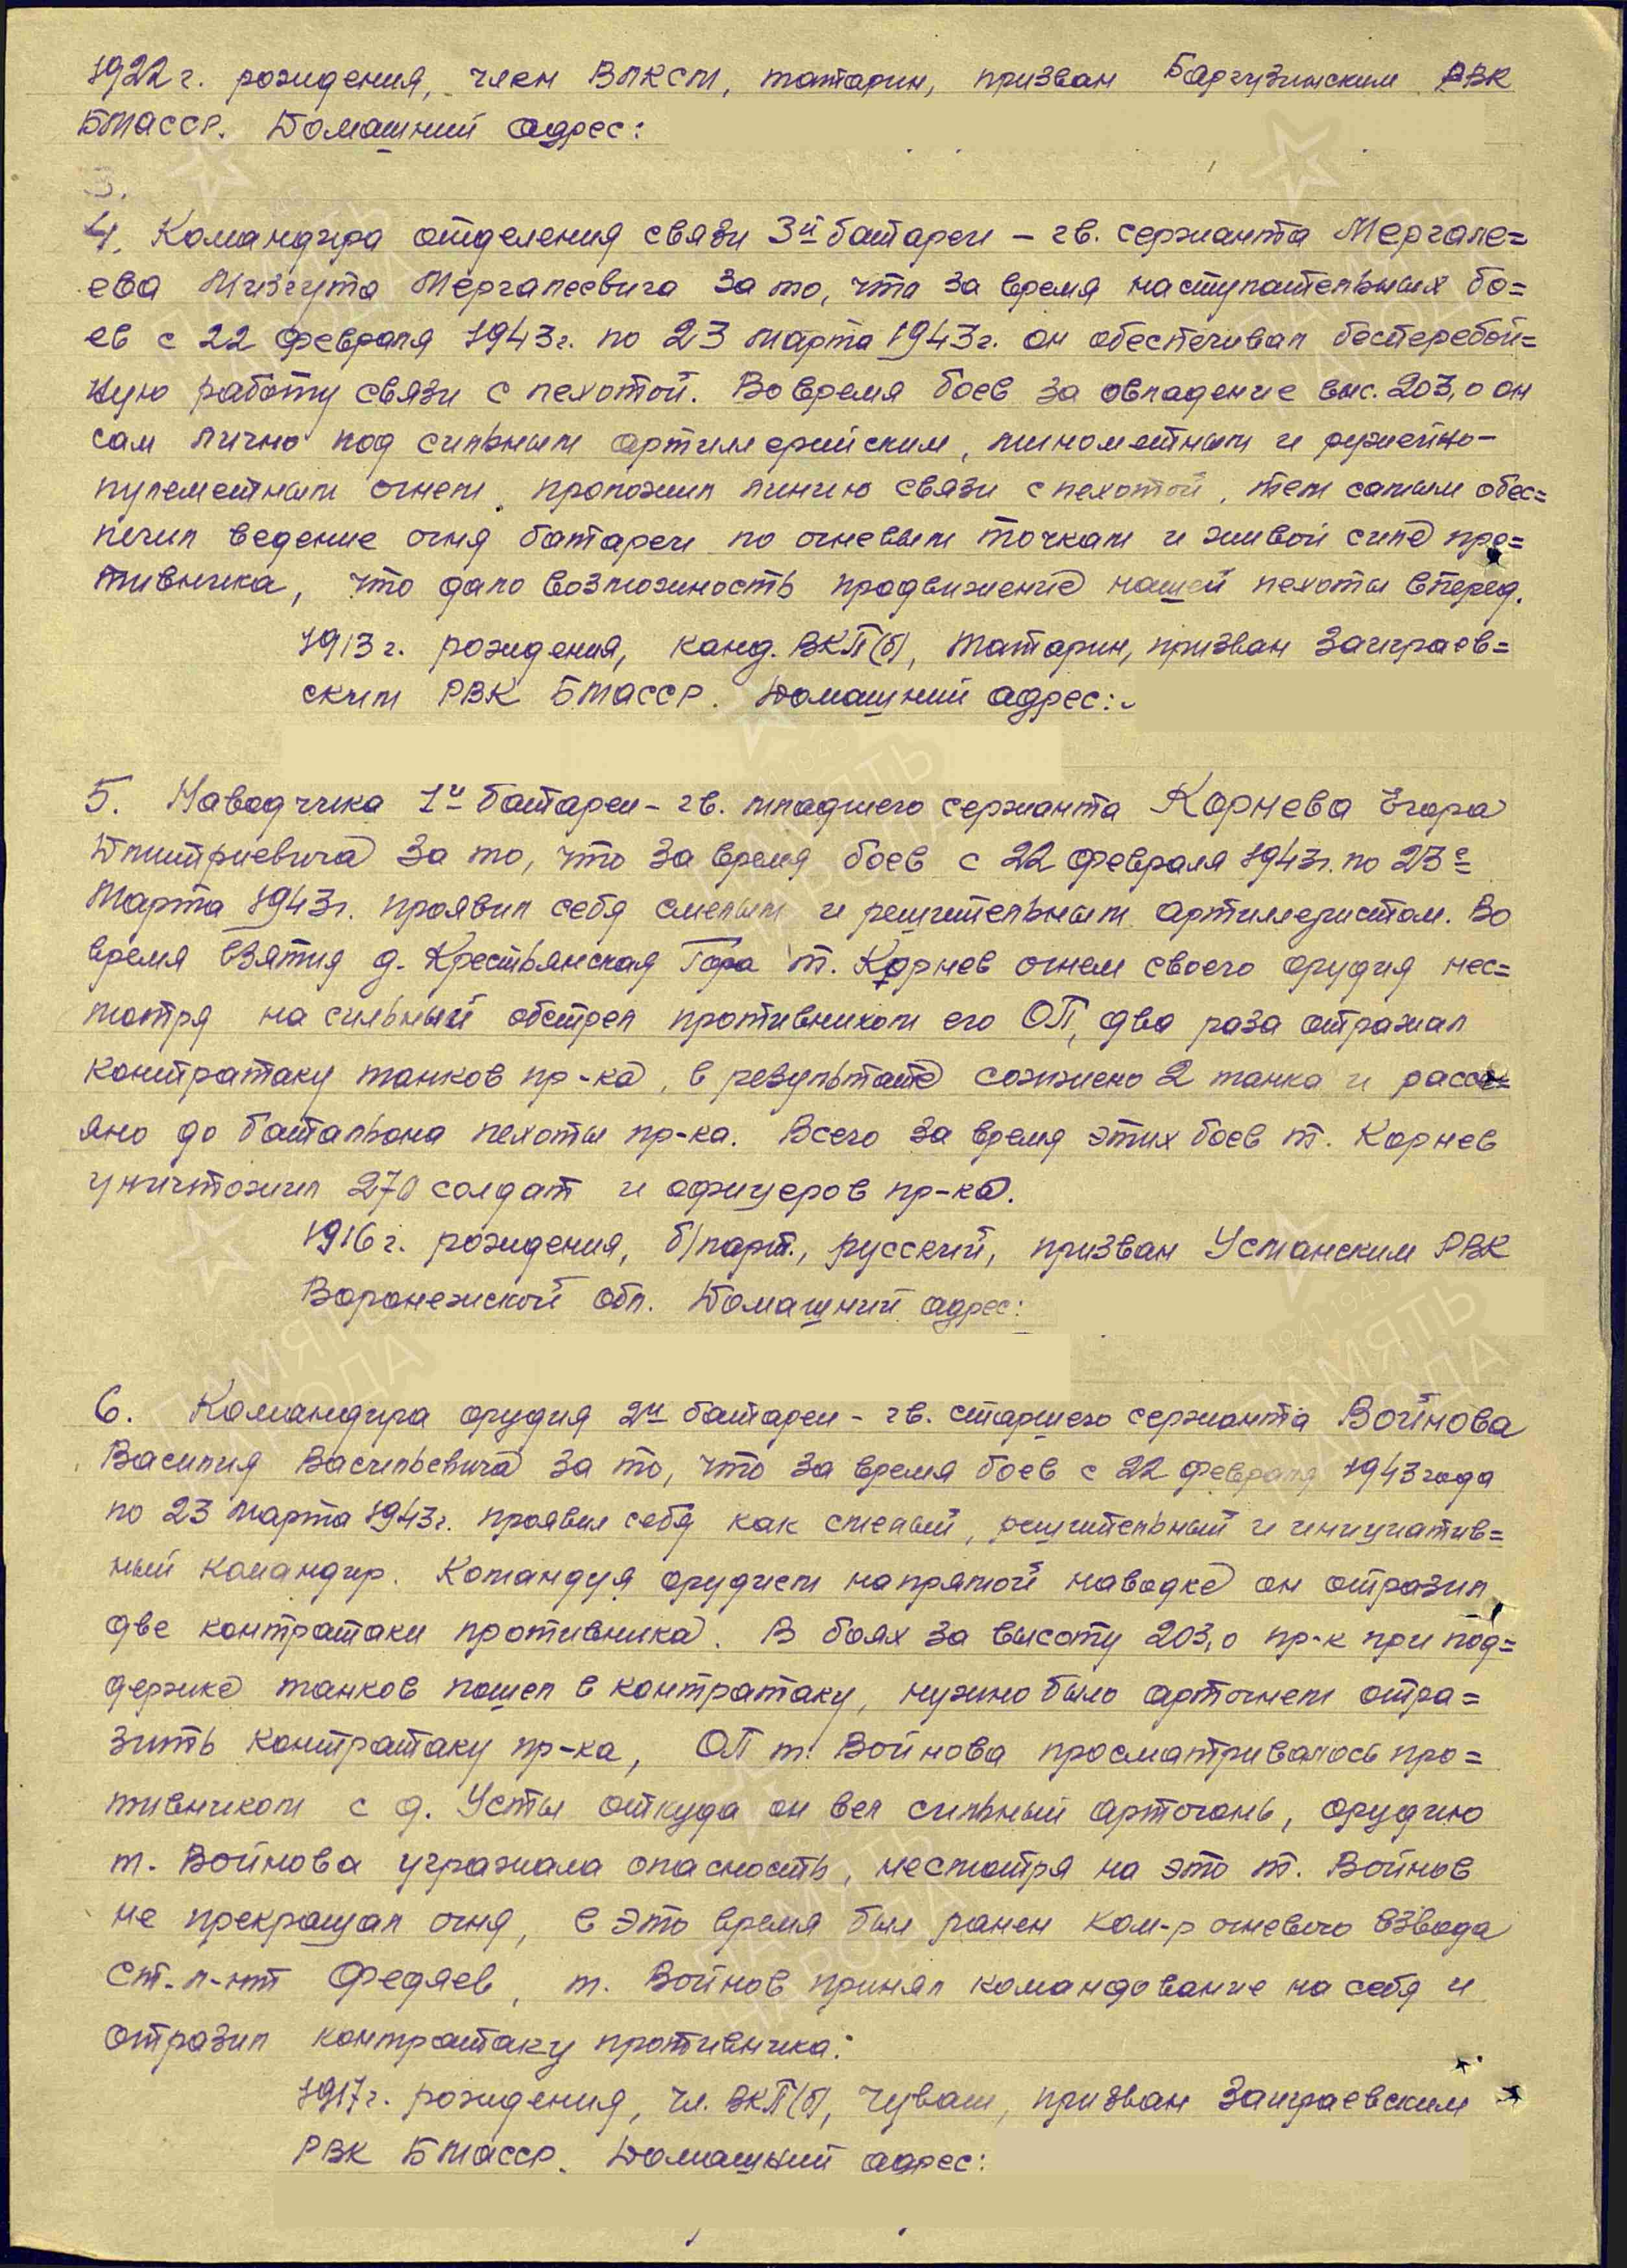 1922 г. рождения, член ВЛКСМ, татарин, призван Баргузинским РВК
БМАССР. Домашний адрес:
3.
4. Командира отделения связи 3й батареи – гв. сержанта Мергале=
ева Мизгута Мергалеевича за то, что за время наступательных бо=
ев с 22 февраля 1943г. по 23 марта 1943г. он обеспечивал бесперебой=
ную работу связи с пехотой. Во время боев за овладение выс. 203,0 он
сам лично под сильным артиллерийским, минометным и ружейно-
пулеметным огнем проложил линию связи с пехотой, тем самым обес=
печил ведение огня батареи по огневым точкам и живой силе про=
тивника, что дало возможность продвижение нашей пехоты вперед.
1913 г. рождения, канд. ВКП(б), татарин, призван Заиграев=
ским РВК БМАССР. Домашний адрес:
5. Наводчика 1й батареи – гв. младшего сержанта Корнева Егора
Дмитриевича за то, что за время боев с 22 февраля 1943г. по 23е
марта 1943г. проявил себя смелым и решительным артиллеристом. Во
время взятия д. Крестьянская Гора т. Корнев огнем своего орудия нес=
мотря на сильный обстрел противником его ОП, два раза отражал
контратаку танков пр-ка, в результате сожжено 2 танка и рассе=
яно до батальона пехоты пр-ка. Всего за время этих боев т. Корнев
уничтожил 270 солдат и офицеров пр-ка.
1916 г. рождения, б/парт., русский, призван Усманским РВК
Воронежской обл. Домашний адрес:
6. Командира орудия 2й батареи – гв. старшего сержанта Войнова
Василия Васильевича за то, что за время боев с 22 февраля 1943 года
по 23 марта 1943г. проявил себя как смелый, решительный и инициатив=
ный командир. Командуя орудием на прямой наводке он отразил
две контратаки противника. В боях за высоту 203,0 пр-к при под=
держке танков пошел в контратаку, нужно было артогнем отра=
зить контратаку пр-ка, ОП т. Войнова просматривалось про=
тивником с д. Усты откуда он вел сильный артогонь, орудию
т. Войнова угражала опасность, несмотря на это т. Войнов
не прекращал огня, в это время был ранен ком-р огневого взвода
ст. л-нт Федяев, т. Войнов принял командование на себя и
отразил контратаку противника.
1917 г. рождения, чл. ВКП(б), чуваш, призван Заиграевским
РВК БМАССР. Домашний адрес: